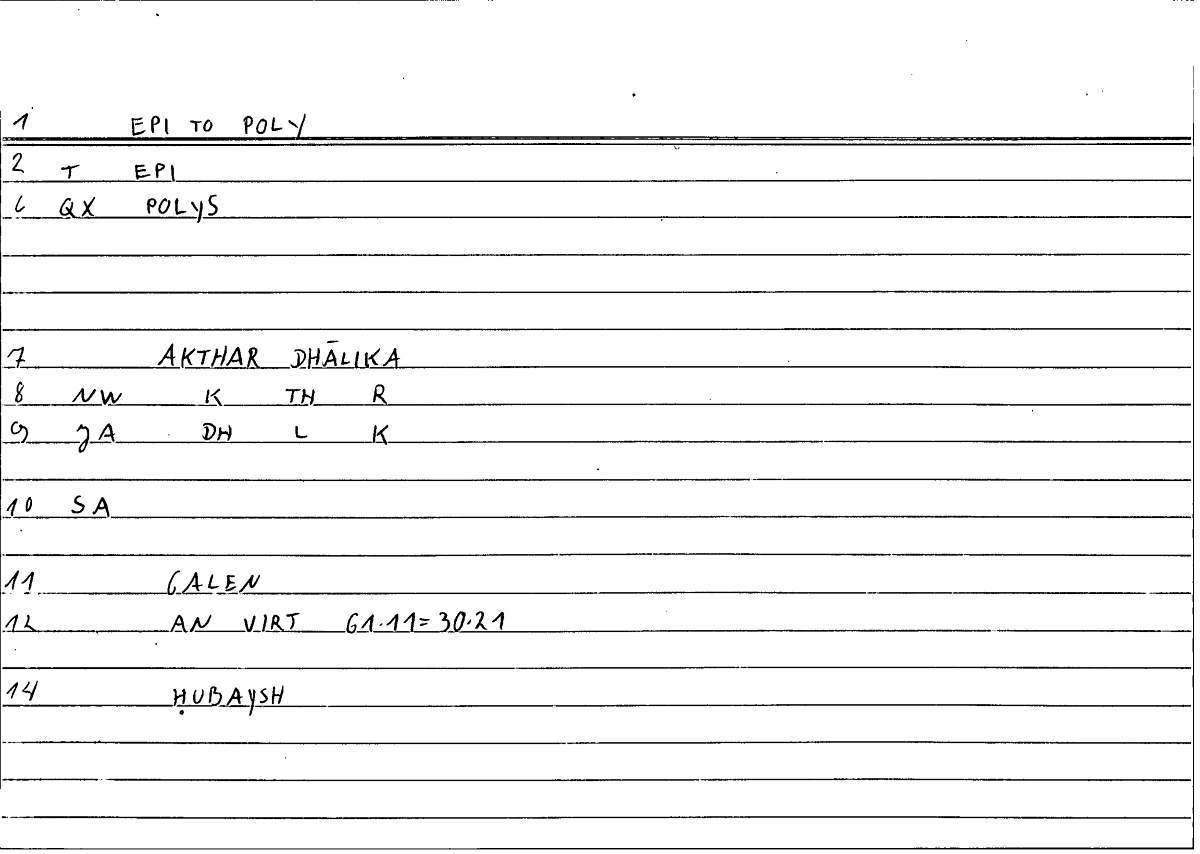 1 EPI TO POLY
2 T EPI
6 QX POLYS
7 AKTHAR DHĀLIKA
8 NW K TH R
9 JA DH L K
10 SA
11 GALEN
12 AN VIRT 61.11=30.21
14 ḤUBAYSH